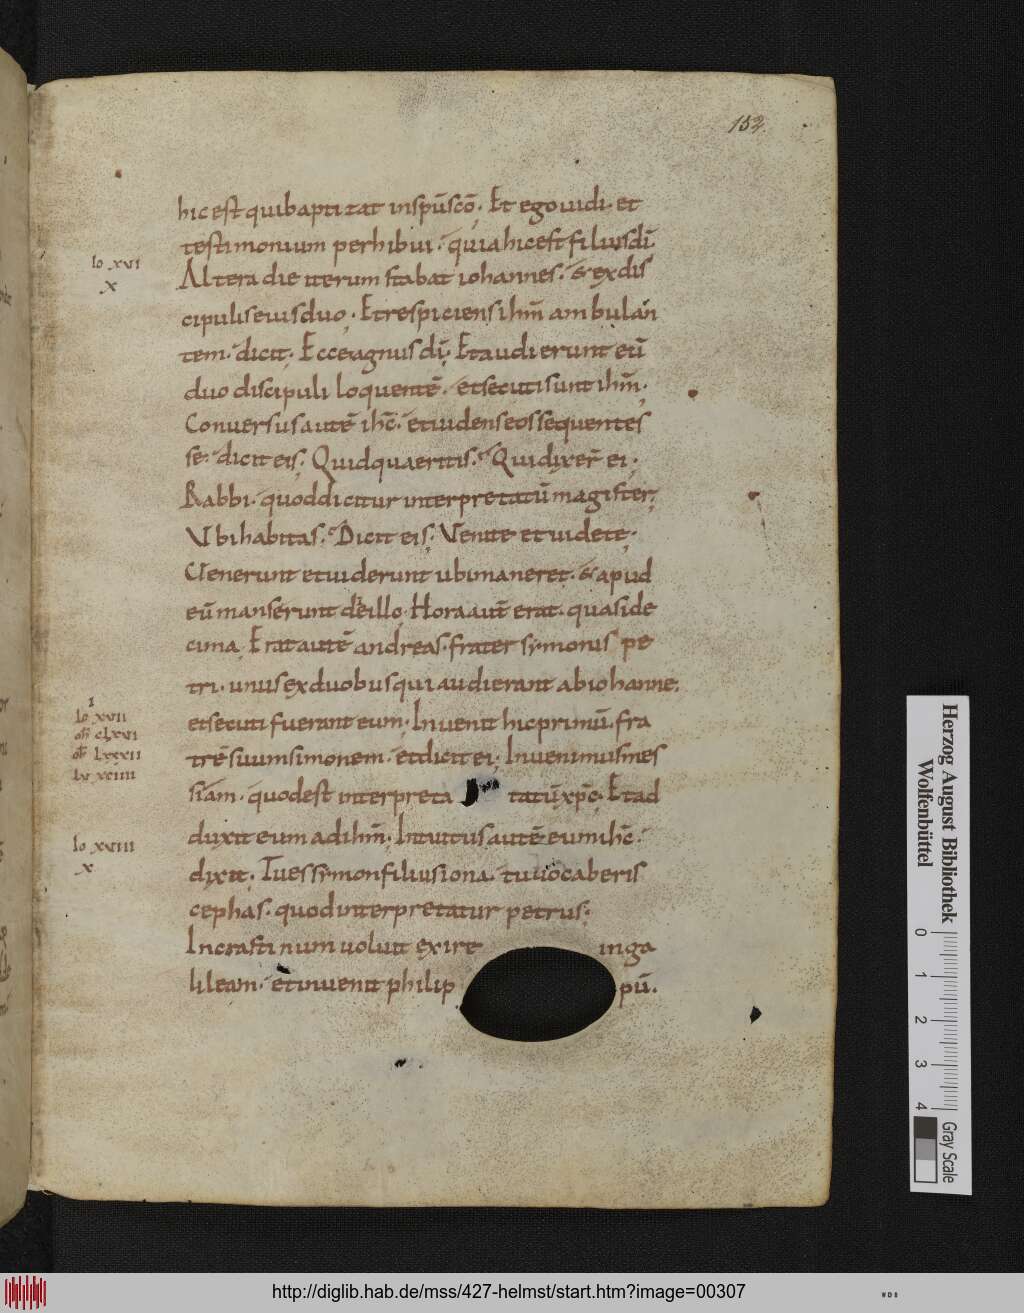 152
hic est qui baptizat in spū scō. Et ego uidi. et
testimonium perhibui. quia hic est filius dī.
Io xvi
Altera die iterum stabat iohannes. & ex dis
x
cipulis eius duo. Et respiciens ihm̄ ambulan
tem. dicit. Ecce agnus dī. Et audierunt eū
duo discipuli loquentē. et secuti sunt ihm̄.
Conuersus autē ihc̄. et uidens eos sequentes
se. dicit eis. Quid quaeritis. Qui dixer̄ ei.
Rabbi. quod dicitur interpretatū magister,
Vbi habitas. Dicit eis. Venite et uidete.
Uenerunt et uiderunt ubi maneret. & apud
eū manserunt die illo. Hora autē erat. quasi de
cima. Erat autē andreas. frater symonis pe
tri. unus ex duobus qui audierant ab iohanne.
Io xvii
et secuti fuerant eum. Inuenit hic primū. fra
clxvi
lxxxii
trē suum simonem. et dicit ei. Inuenimus mes
xciiii
siam. quod est interpreta tatū xpc̄. Et ad
duxit eum ad ihm̄. Intuitus autē eum ihc̄.
Io xviii
dixit. Tu es symon filius iona. tu uocaberis
x
cephas. quod interpretatur petrus.
In crastinum uoluit exire in ga
lileam. et inuenit philip pū.
Herzog August Bibliothek
Wolfenbüttel
0 1 2 3 4
Gray Scale
http://diglib.hab.de/mss/427-helmst/start.htm?image=00307